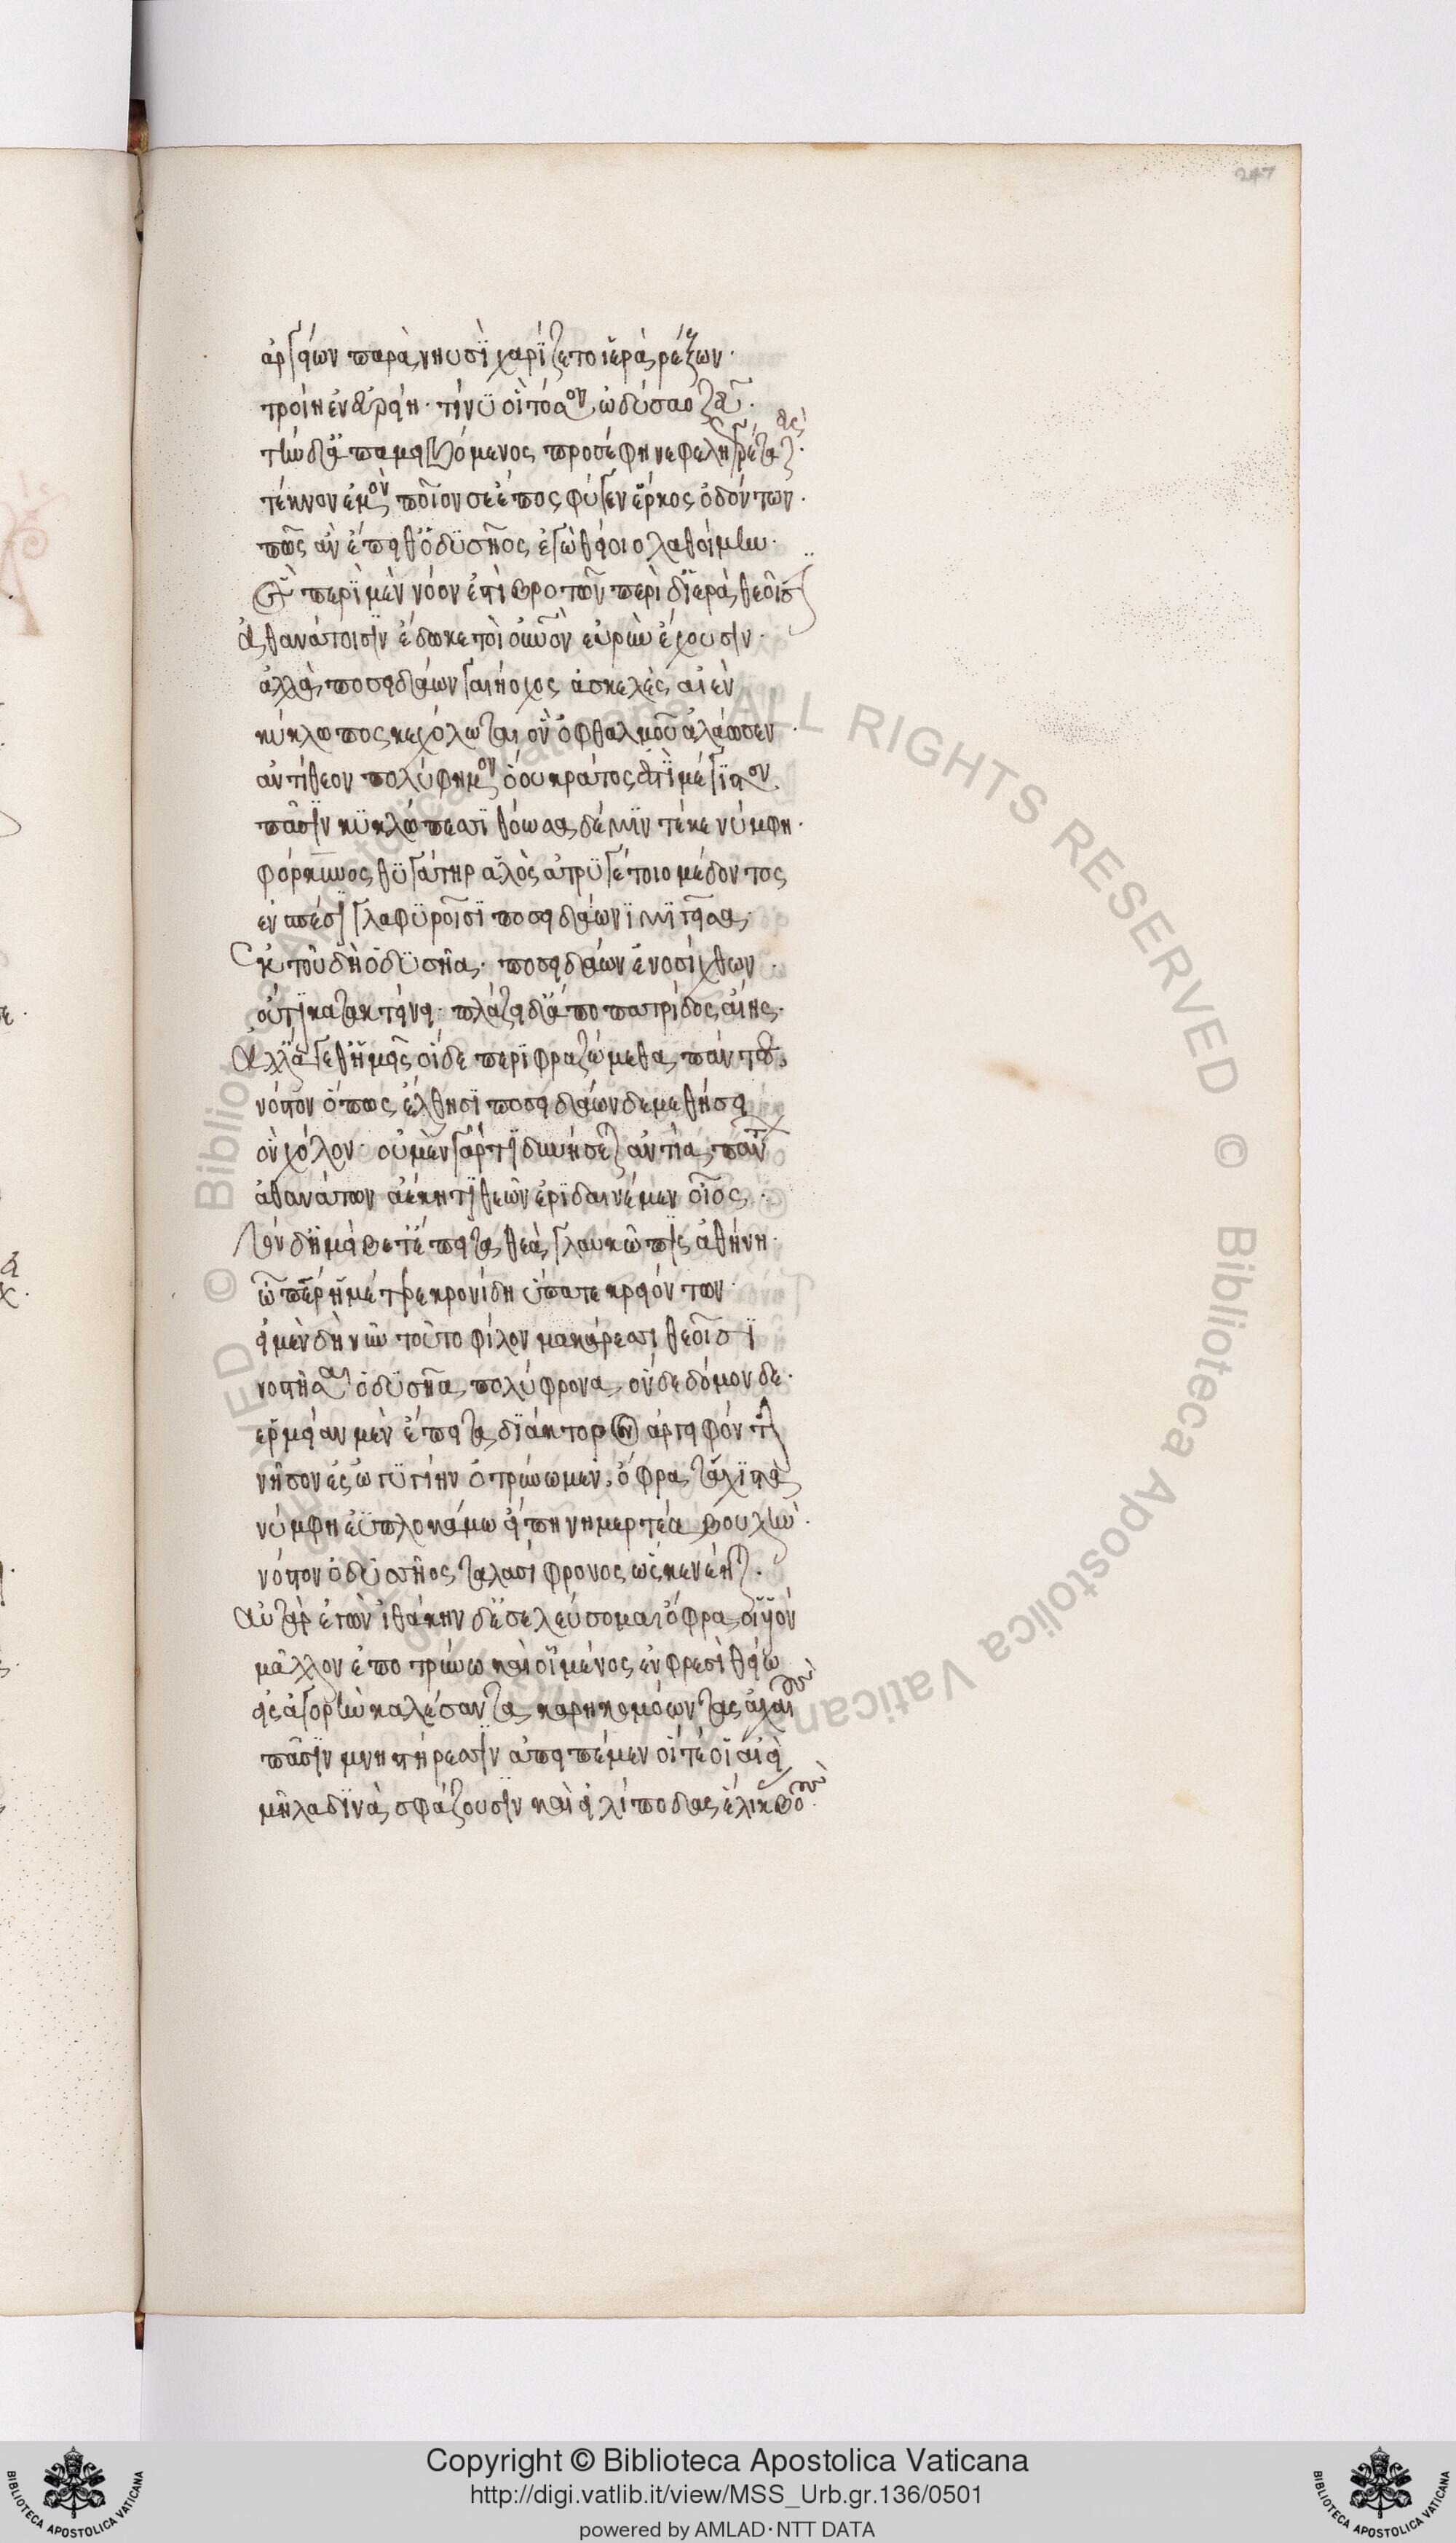 247
ἀργείων παρὰ νηυσὶ χαρίζετο ἱερὰ ῥέζων·
τροίη ἐν εὐρείῃ· τί νύ οἱ τόσον ὠδύσαο ζεῦ·
τὴν δ' ἀπαμειβόμενος προσέφη νεφεληγερέτα ζεύς·
τέκνον ἐμὸν ποῖον σε ἔπος φύγεν ἕρκος ὀδόντων·
πῶς ἂν ἔπειθ' ὀδυσῆος ἐγὼ θείοιο λαθοίμην·
ὃς περὶ μὲν νόον ἐστὶ βροτῶν περὶ δ' ἱερὰ θεοῖσιν
ἀθανάτοισιν ἔδωκε τοὶ οὐρανὸν εὐρὺν ἔχουσιν·
ἀλλὰ ποσειδάων γαιήοχος ἀσκελὲς αἰὲν
κύκλωπος κεχόλωται ὃν ὀφθαλμοῦ ἀλάωσεν·
ἀντίθεον πολύφημον ὅου κράτος ἐστὶ μέγιστον
πᾶσιν κυκλώπεσι θόωσα δέ μιν τέκε νύμφη·
φόρκυνος θυγάτηρ ἁλὸς ἀτρυγέτοιο μέδοντος
ἐν σπέσι γλαφυροῖσι ποσειδάωνι μιγεῖσα·
ἐκ τοῦ δὴ ὀδυσῆα· ποσειδάων ἐνοσίχθων·
οὔτι κατακτείνει· πλάζει δ' ἀπο πατρίδος αἴης·
ἀλλ' ἄγεθ' ἡμεῖς οἵδε περιφραζώμεθα πάντες
νόστον ὅπως ἔλθησι ποσειδάων δε μεθήσει
ὃν χόλον· οὐ μὲν γάρ τι δυνήσεται ἀντία πάντων
ἀθανάτων ἀέκητι θεῶν ἐριδαινέμεν οἶος·
τὸν δ' ἠμείβετ' ἔπειτα θεὰ γλαυκῶπις ἀθήνη·
ὦ πάτερ ἡμέτερε κρονίδη ὕπατε κρειόντων·
εἰ μὲν δὴ νῦν τοῦτο φίλον μακάρεσσι θεοῖσι
νοστῆσαι ὀδυσῆα πολύφρονα ὅνδε δόμονδε·
ἑρμείαν μὲν ἔπειτα διάκτορον ἀργειφόντην
νῆσον ἐς ὠγυγίην ὀτρύνωμεν· ὄφρα τάχιστα
νύμφη ἐϋπλοκάμω εἴπη νημερτέα βουλὴν·
νόστον ὀδυσῆος ταλασίφρονος ὥς κε νέηται·
αὐτὰρ ἐγὼν ἰθάκην δ' ἐσελεύσομαι ὄφρα οἱ υἱὸν
μᾶλλον ἐποτρύνω καὶ οἱ μένος ἐν φρεσὶ θείω
εἰς ἀγορὴν καλέσαντα καρηκομόωντας ἀχαιούς
πᾶσιν μνηστήρεσσιν ἀπειπέμεν οἵτέ οἱ αἰεὶ
μῆλ' ἁδινὰ σφάζουσιν καὶ εἰλίποδας ἕλικας βοῦς·
© Biblioteca Apostolica Vaticana ALL RIGHTS RESERVED © Biblioteca Apostolica Vaticana
Copyright © Biblioteca Apostolica Vaticana
http://digi.vatlib.it/view/MSS_Urb.gr.136/0501
powered by AMLAD·NTT DATA
BIBLIOTECA APOSTOLICA VATICANA
BIBLIOTECA APOSTOLICA VATICANA